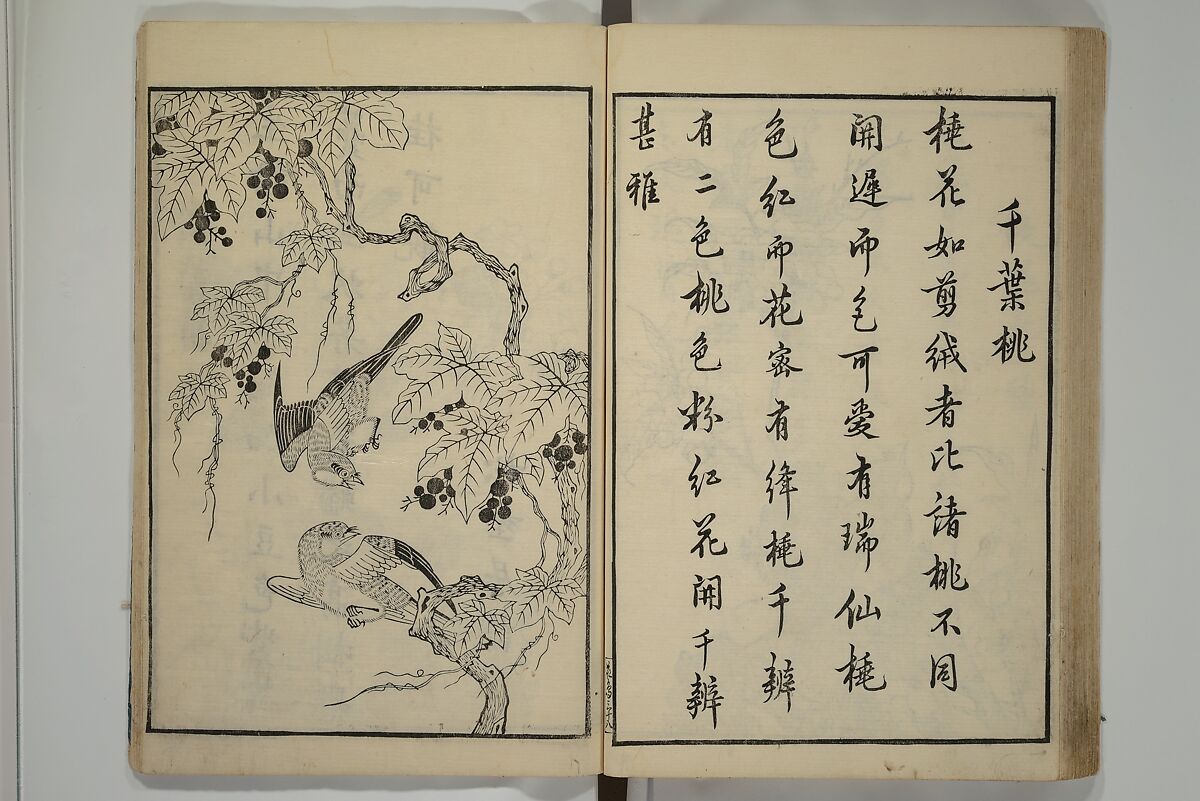 千葉桃
桃花如剪絨者比諸桃不同
開遲而色可愛有瑞仙桃
色紅而花密有絳桃千瓣
有二色桃色粉紅花開千瓣
甚雅